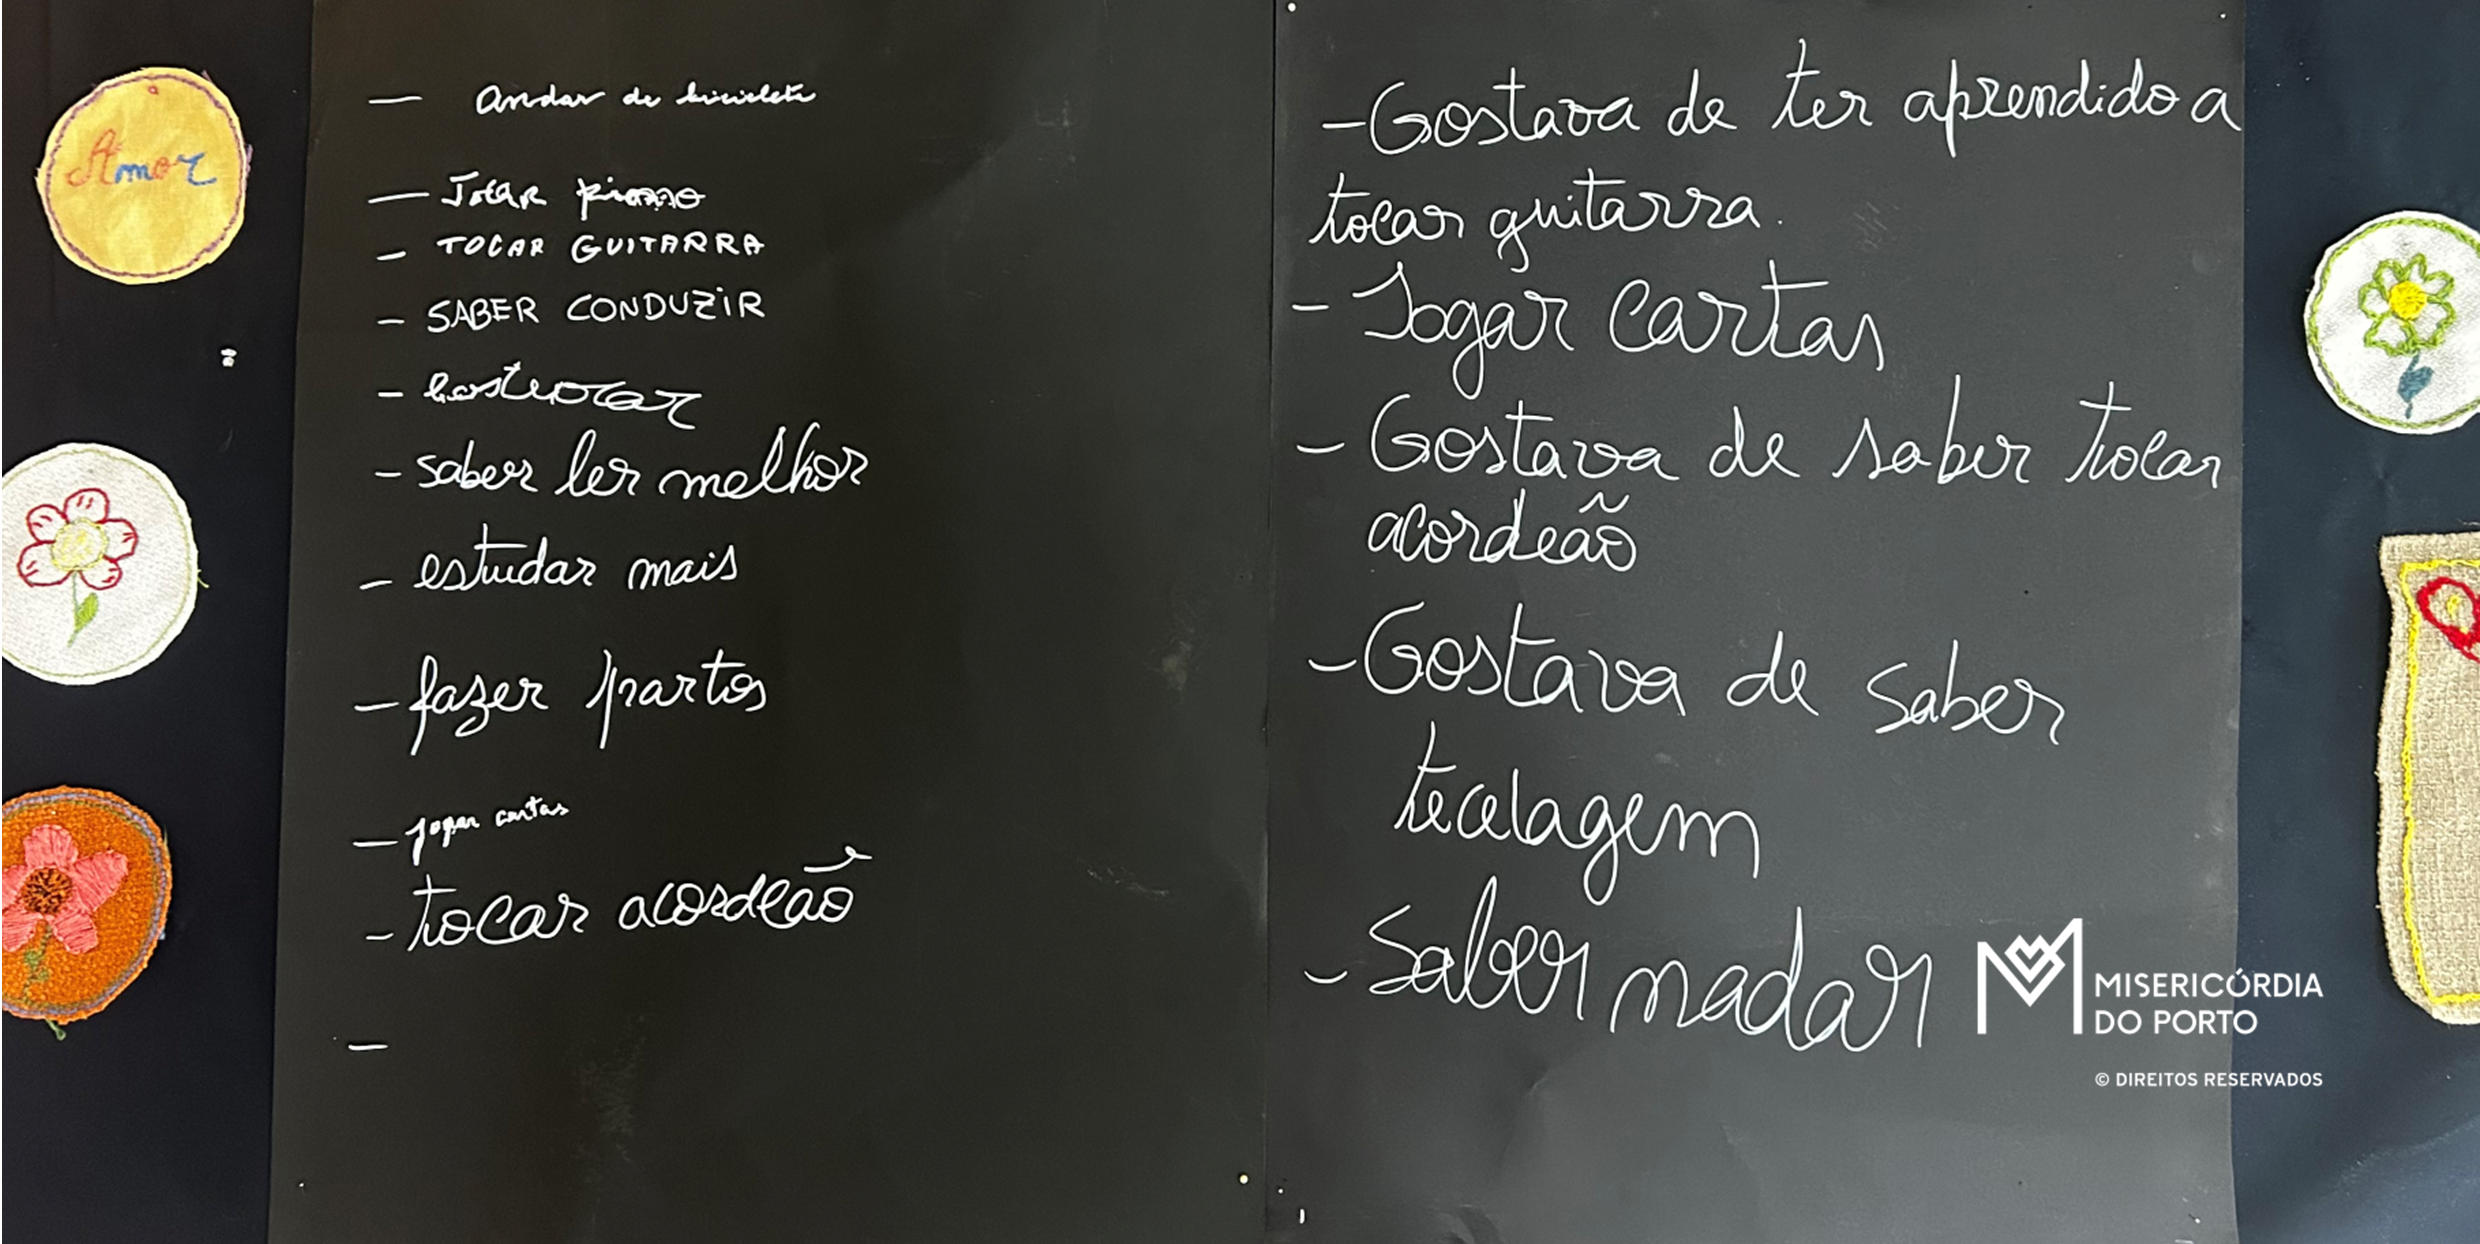 Amor
— Andar de bicicleta
— Tocar piano
- TOCAR GUITARRA
- SABER CONDUZIR
-
- saber ler melhor
- estudar mais
- fazer partos
— jogar cartas
- tocar acordeão
-
- Gostava de ter aprendido a
tocar guitarra.
- Jogar cartas
- Gostava de saber tocar
acordeão
- Gostava de saber
tecelagem
- Saber nadar
MISERICÓRDIA
DO PORTO
© DIREITOS RESERVADOS